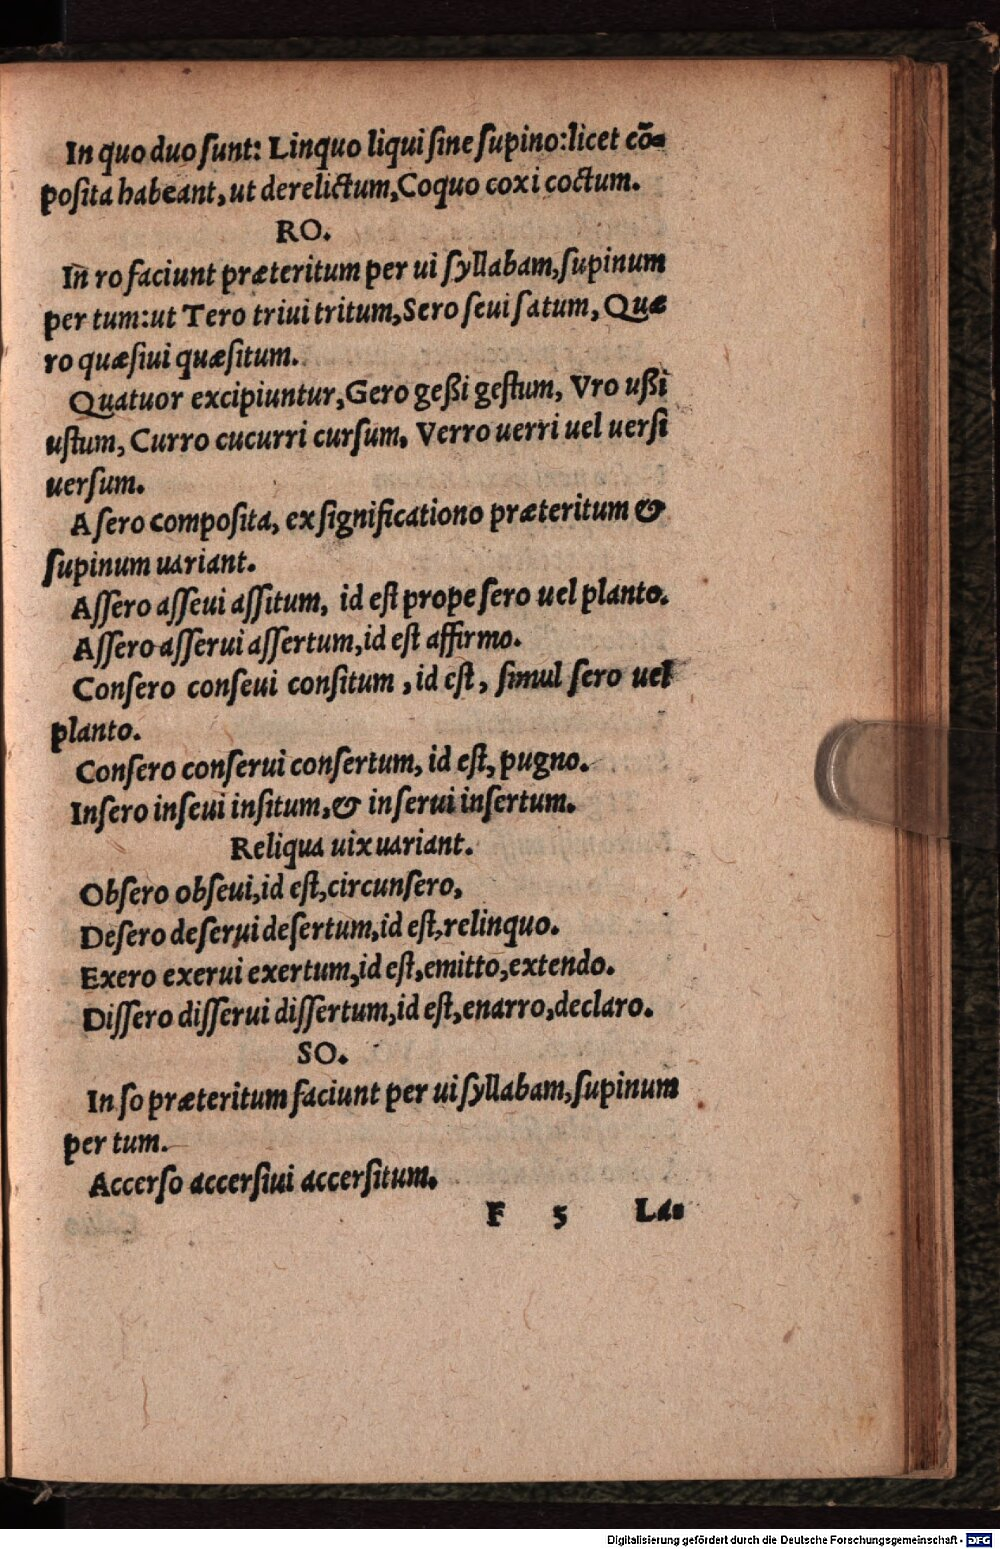 In quo duo ſunt: Linquo liqui ſine ſupino: licet cō-
poſita habeant, ut derelictum, Coquo coxi coctum.
RO.
In ro faciunt præteritum per ui ſyllabam, ſupinum
per tum: ut Tero triui tritum, Sero ſeui ſatum, Quæ
ro quæſiui quæſitum.
Quatuor excipiuntur, Gero geßi geſtum, Vro ußi
uſtum, Curro cucurri curſum, Verro uerri uel uerſi
uerſum.
A ſero compoſita, ex ſignificationo præteritum &
ſupinum uariant.
Aſſero aſſeui aſſitum, id eſt prope ſero uel planto.
Aſſero aſſerui aſſertum, id eſt affirmo.
Conſero conſeui conſitum, id eſt, ſimul ſero uel
planto.
Conſero conſerui conſertum, id eſt, pugno.
Inſero inſeui inſitum, & inſerui inſertum.
Reliqua uix uariant.
Obſero obſeui, id eſt, circunſero,
Deſero deſerui deſertum, id eſt, relinquo.
Exero exerui exertum, id eſt, emitto, extendo.
Diſſero diſſerui diſſertum, id eſt, enarro, declaro.
SO.
In ſo præteritum faciunt per ui ſyllabam, ſupinum
per tum.
Accerſo accerſiui accerſitum.
F 5 La-
Digitalisierung gefördert durch die Deutsche Forschungsgemeinschaft - DFG